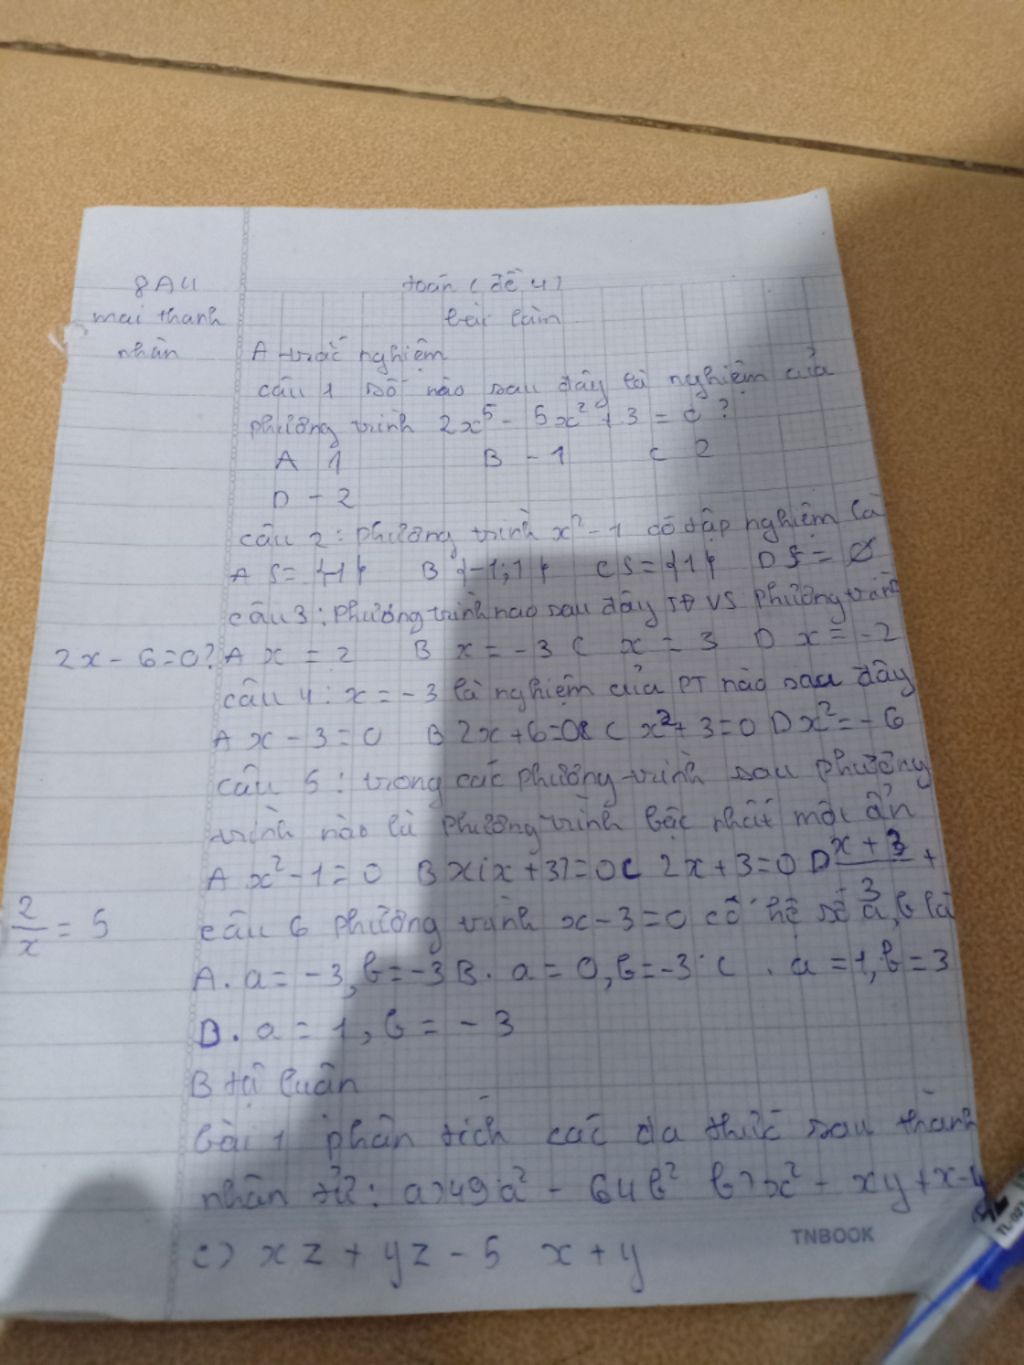 8A4 toán (đề 4)
mai thanh bài làm
nhàn A trắc nghiệm
câu 1 số nào sau đây là nghiệm của
phương trình 2x⁵ - 5x² + 3 = 0 ?
A 1 B - 1 C 2
D - 2
câu 2: phương trình x² - 1 có tập nghiệm là
A S = {-1} B {-1; 1} C S = {1} D S = ∅
câu 3: phương trình nào sau đây TĐ VS phương trình
2x - 6 = 0? A x = 2 B x = -3 C x = 3 D x = -2
câu 4: x = -3 là nghiệm của PT nào sau đây
A x - 3 = 0 B 2x + 6 = 0 C x² + 3 = 0 D x² = -6
câu 5: trong các phương trình sau phương
trình nào là phương trình bậc nhất một ẩn
A x² - 1 = 0 B x(x + 3) = 0 C 2x + 3 = 0 D (x + 3)/3 +
2/x = 5 câu 6 phương trình x - 3 = 0 có hệ số a, b là
A. a = -3, b = -3 B. a = 0, b = -3 C. a = 1, b = 3
D. a = 1, b = - 3
B tự luận
bài 1 phân tích các đa thức sau thành
nhân tử: a) 49a² - 64b² b) x² - xy + x - y
c) xz + yz - 5 x + y
TNBOOK